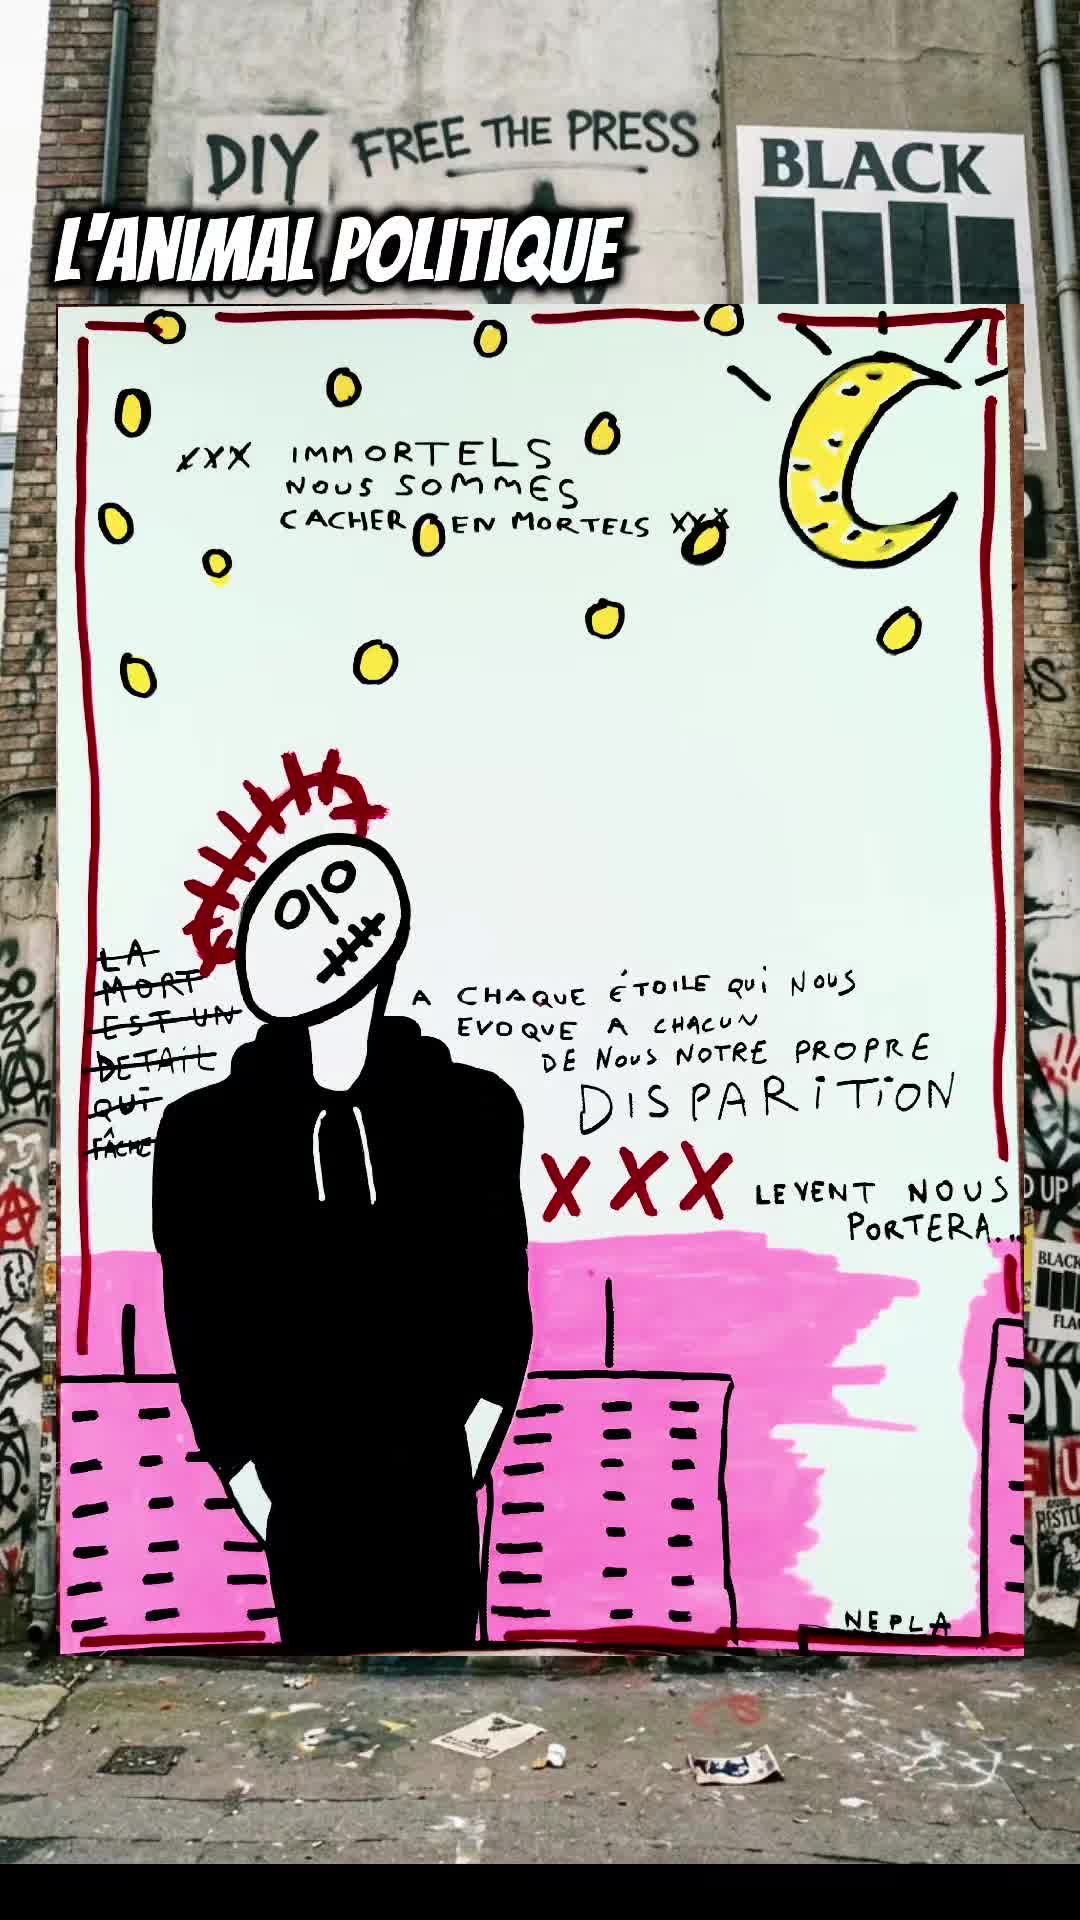 DIY
FREE THE PRESS
BLACK
L'ANIMAL POLITIQUE
XXX IMMORTELS
NOUS SOMMES
CACHER EN MORTELS XXX
LA
MORT
EST UN
DETAIL
QUI
FÂCHE
A CHAQUE ÉTOILE QUI NOUS
EVOQUE A CHACUN
DE NOUS NOTRE PROPRE
DISPARITION
XXX LEVENT NOUS
PORTERA...
UP
BLACK
FLAG
DIY
NEPLA